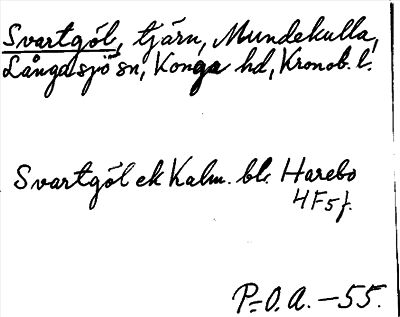 Svartgöl, tjärn, Mundekulla,
Långasjö sn, Konga hd, Kronob. l.
Svartgöl ek Kalm. bl. Harebo
4F5f.
P.=O.A. -55.